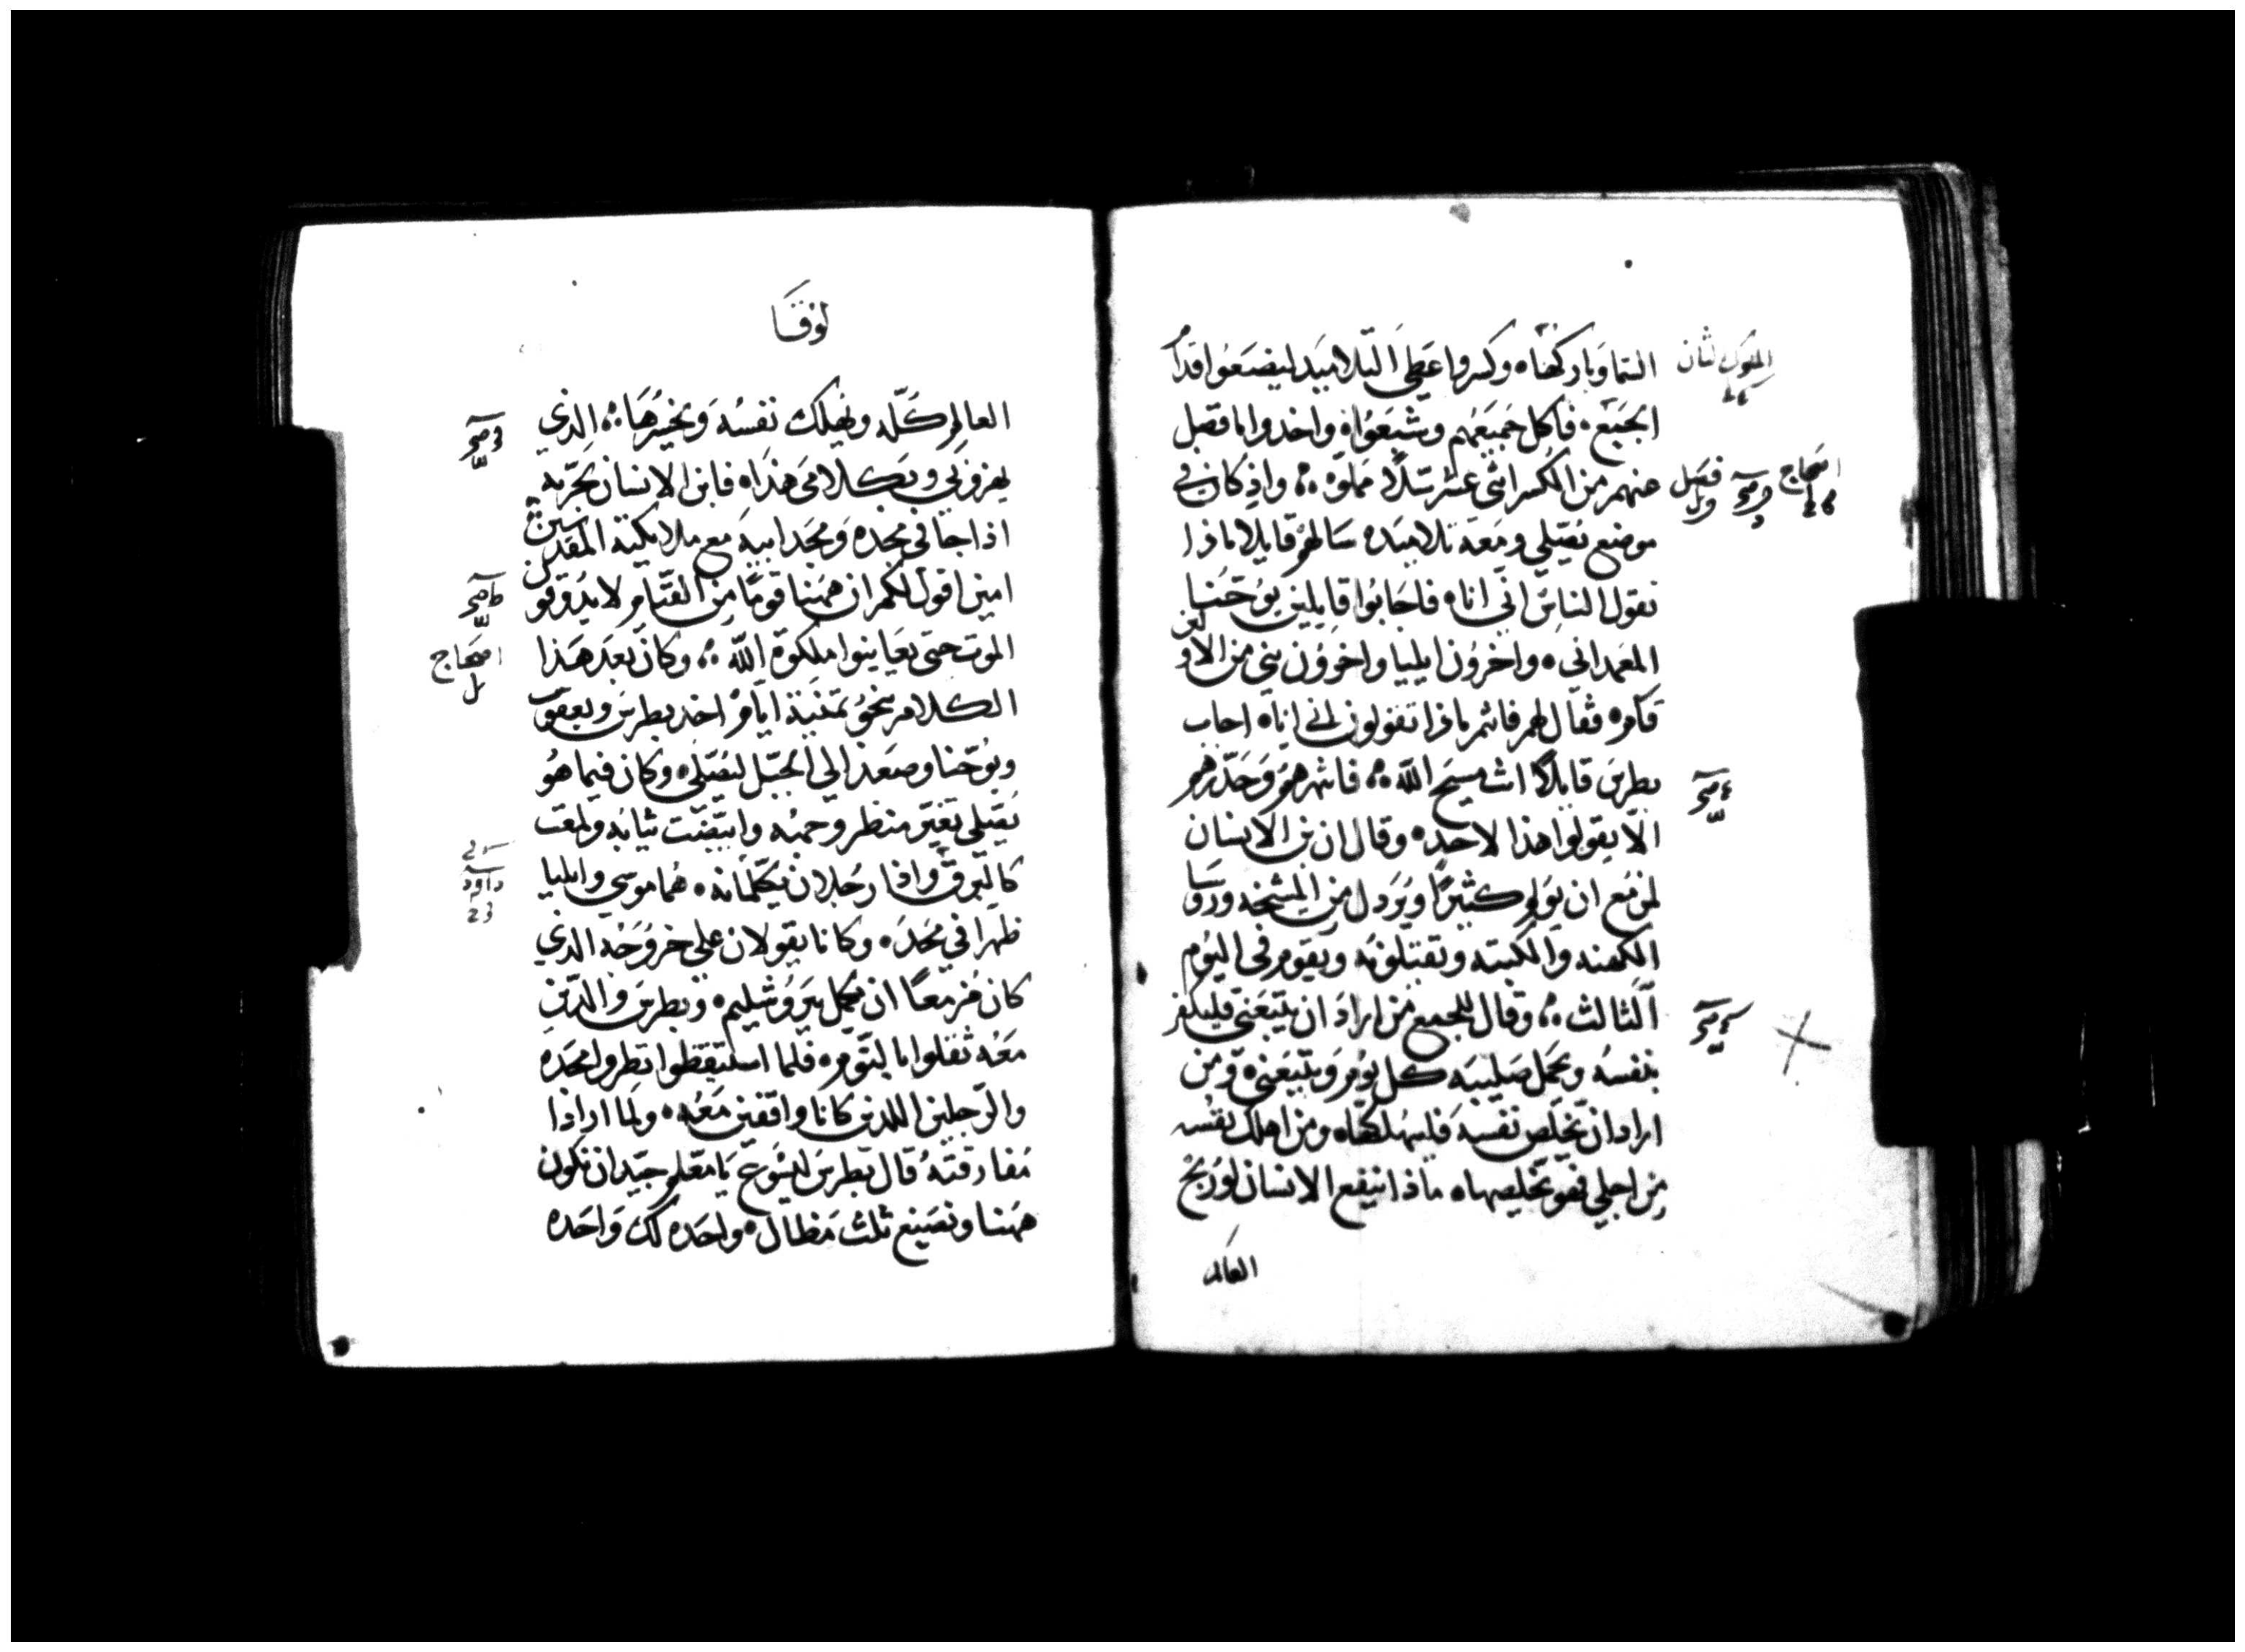 السما وباركها ٥ وكسر واعطى التلاميد ليضعوا قدام
الجميع ٥ فاكل جميعهم وشبعوا ٥ واخدوا ما فضل
عنهم من الكسر اثنى عشر سلا مملوه ٥ واذ كان في
موضع يصلي ومعه تلاميده سالهم قايلا ماذا
تقول الناس اني انا ٥ فاجابوا قايلين يوحنا
المعمداني ٥ واخرون ايليا واخرون نبي من الاولين
قام ٥ فقال لهم فانتم ماذا تقولون اني انا ٥ اجاب
بطرس قايلا انت مسيح الله ٥ فانتهرهم وحدرهم
الا يقولوا هذا لاحد ٥ وقال ان بن الانسان
لمزمع ان يولم كثيرا ويردل من المشيخه وروسا
الكهنه والكتبه وتقتلونه ويقوم في اليوم
الثالث ٥ وقال للجميع من اراد ان يتبعني فليكفر
بنفسه ويحمل صليبه كل يوم ويتبعني ٥ ومن
اراد ان يخلص نفسه فليهلكها ٥ ومن اهلك نفسه
من اجلي فهو يخلصها ٥ ماذا ينفع الانسان لو ربح
العالم
فصل
اصحاح
لوقا
العالم كله ويهلك نفسه ويخسرها ٥ الذي
يهزو بي وبكلامي هذا ٥ فابن الانسان يخزيه
اذا جا في مجده ومجد ابيه مع ملايكته المقدسين
امين اقول لكم ان ههنا قوما من القيام لا يدوقو
الموت حتى يعاينوا ملكوة الله ٥ وكان بعد هذا
الكلام نحو تمنية ايام اخد بطرس ويعقوب
ويوحنا وصعد الي الجبل ليصلي ٥ وكان فيما هو
يصلي تغير منظر وجهه وابيضت ثيابه ولمعت
كالبرق واذا رجلان يكلمانه ٥ هما موسي وايليا
ظهرا في مجد ٥ وكانا يقولان علي خروجه الدي
كان مزمعا ان يكمل بيروشليم ٥ وبطرس والدين
معه ثقلوا بالنوم ٥ فلما استيقظوا نظروا مجده
والرجلين اللدين كانا واقفين معه ٥ ولما ارادا
مفارقته قال بطرس ليسوع يا معلم جيد ان نكون
ههنا ونصنع ثلث مظال ٥ واحده لك وواحده
اصحاح
داود